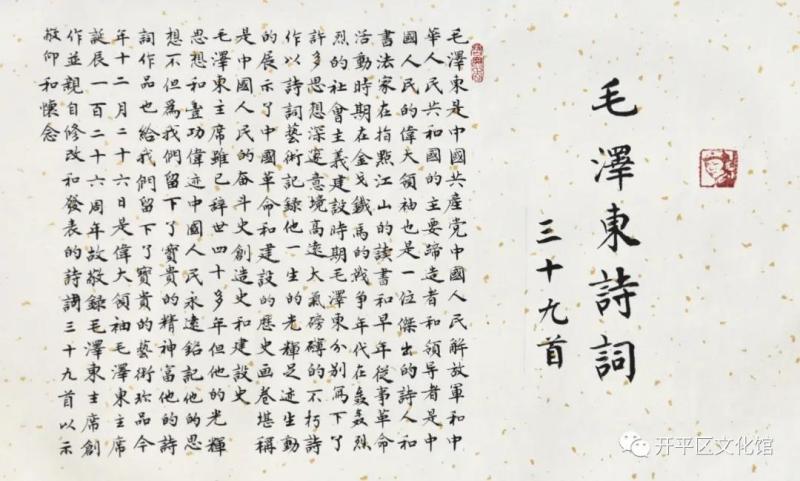 毛澤東詩詞
三十九首
毛澤東是中國共産党中國人民解放軍和中
華人民共和國的主要蹄造者和領导者是中
國人民的偉大領袖也是一位傑出的詩人和
書法家在指點江山的讀書和早年從事革命
活動時期在金戈鐵馬的戰争年代在轰轰烈
烈的社會主義建設時期毛澤東分别寫下了
許多思想深邃意境高遠大氣磅礴的不朽詩
作以詩詞藝術記録他一生的光輝足迹生動
的展示了中國革命和建設的歷史画卷堪稱
是中國人民的奋斗史創造史和建設史
毛澤東主席雖已辞世四十多年但他的光輝
思想和豐功偉迹中國人民永遠銘記他的思
想不但為我們留下了寳貴的精神富他的詩
詞作品也給我們留下了寳貴的藝術珎品今
年十二月二十六日是偉大領袖毛澤東主席
誕辰一百二十六周年故敬録毛澤東主席創
作並親自修改和發表的詩詞三十九首以示
敬仰和懷念
开平区文化馆